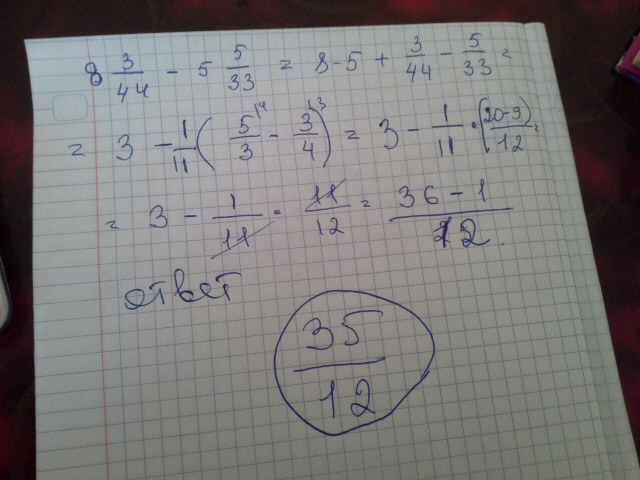 8 3/44 - 5 5/33 = 8-5 + 3/44 - 5/33 =
= 3 - 1/11 ( 5/3 ^14 - 3/4 ^13 ) = 3 - 1/11 · (20-9)/12 =
= 3 - 1/11 · 11/12 = 36-1/12.
ответ
35/12